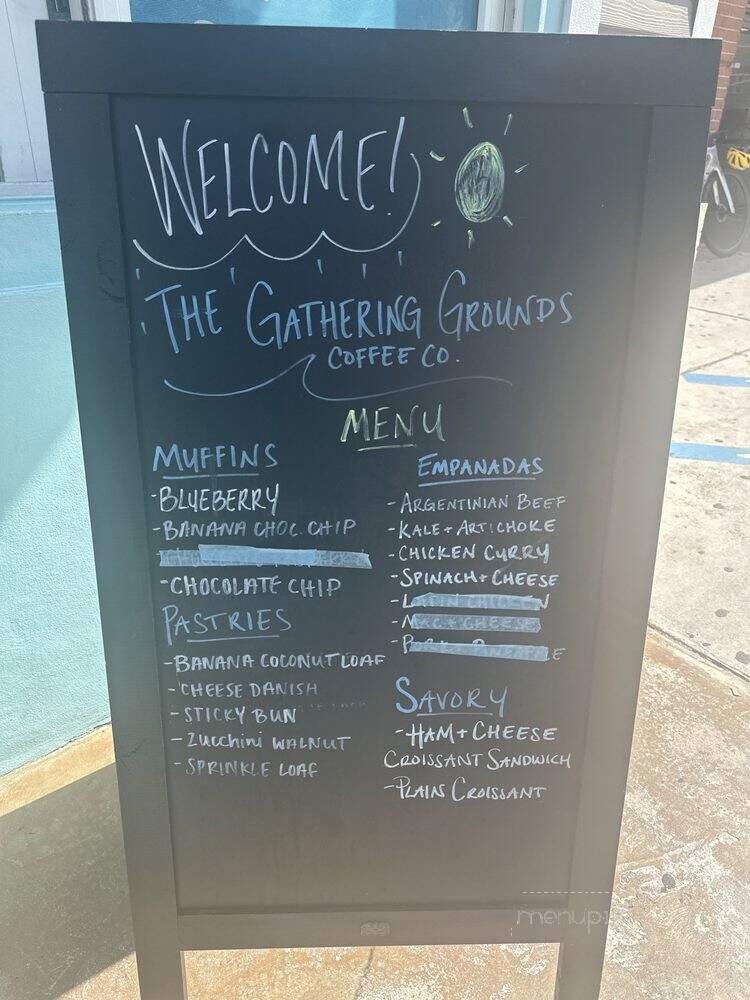 WELCOME!
THE GATHERING GROUNDS
COFFEE CO.
MENU
MUFFINS
-BLUEBERRY
-BANANA CHOC. CHIP
-CHOCOLATE CHIP
PASTRIES
-BANANA COCONUT LOAF
-CHEESE DANISH
-STICKY BUN
-Zucchini WALNUT
-SPRINKLE LOAF
EMPANADAS
-ARGENTINIAN BEEF
-KALE + ARTICHOKE
-CHICKEN CURRY
-SPINACH + CHEESE
SAVORY
-HAM + CHEESE
CROISSANT SANDWICH
-PLAIN CROISSANT